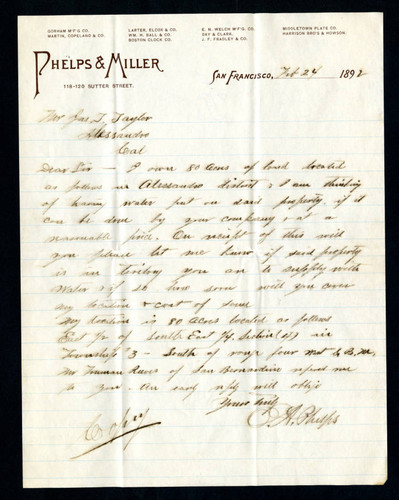 GORHAM M'F'G CO.
MARTIN, COPELAND & CO.
LARTER, ELCOX & CO.
WM. H. BALL & CO.
BOSTON CLOCK CO.
E. N. WELCH M'F'G CO.
DAY & CLARK,
J. F. FRADLEY & CO.
MIDDLETOWN PLATE CO.
HARRISON BRO'S & HOWSON.
PHELPS & MILLER
118-120 SUTTER STREET.
SAN FRANCISCO, Feb 24 1892
Mr Jas. T. Taylor
Alessandro
Cal
Dear Sir - I own 80 Acres of land located
as follows in Alessandro district, & I am thinking
of having water put on said property, if it
can be done by your company & at a
reasonable price. On receipt of this will
you please let me know if said property
is in territory you are to supply with
Water & if so how soon will you cover
my location & cost of same
My location is 80 Acres located as follows
East ½ of South East ¼, Section in
Township 3 - South of range four West S. B. M.
Mr Truman Reeves of San Bernardino refered me
to you - An early reply will oblige
Yours truly
Phelps
Copy